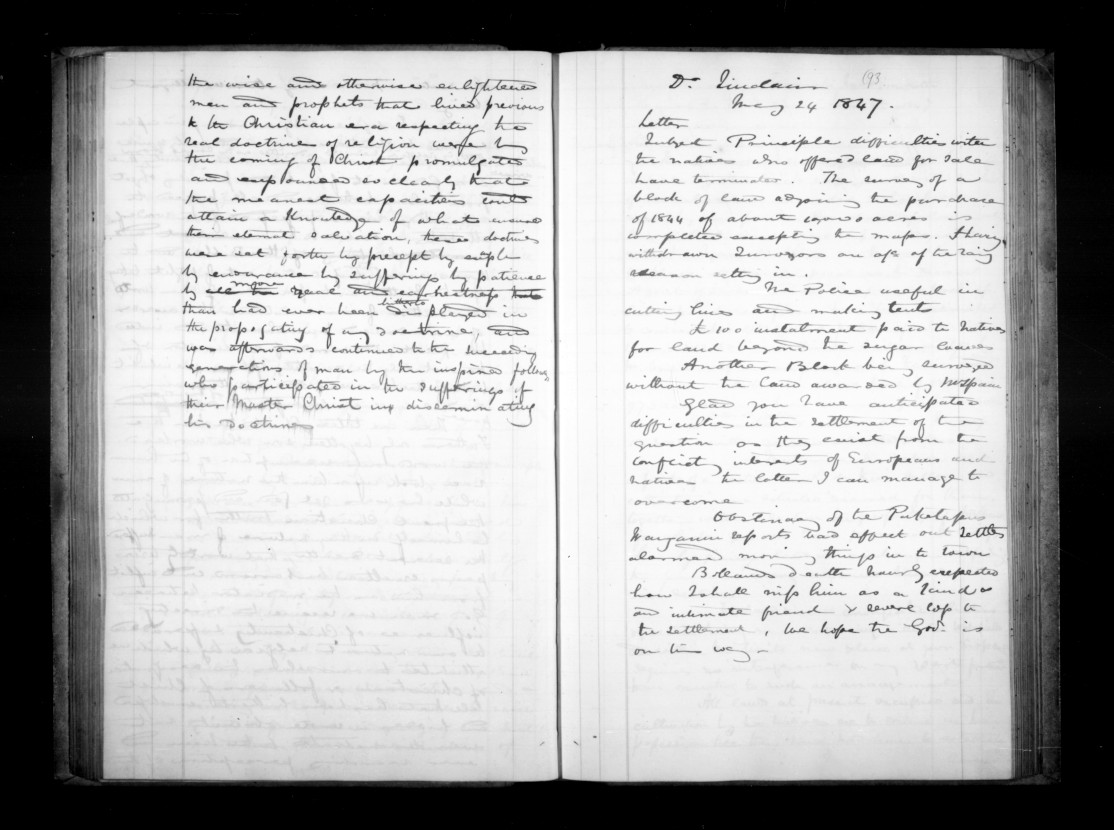 the wise and otherwise enlightened
men and prophets that lived previous
to the Christian era respecting the
real doctrine of religion were by
the coming of Christ promulgated
and expounded so clearly that
the meanest capacities could
attain a knowledge of what
their eternal salvation, these doctrines
were set forth by precept by
by endurance by sufferings by patience
by more zeal and earnestness
than had ever been hitherto displayed in
the propagating of any doctrine, and
was afterwards continued to the succeeding
generations of man by the inspired
who participated in the sufferings of
their Master Christ in disseminating
his doctrines
(93
Dr. Sinclair
May 24 1847.
Letter
Subject Principle difficulties with
the natives who offered land for sale
have terminated. The survey of a
block of land adjoining the purchase
of 1844 of about acres is
completed excepting the maps. Having
withdrawn Surveyors on a/c of the rainy
season setting in.
The Police useful in
cutting lines and making tents
£100 instalment paid to Natives
for land beyond the Sugar Loaves
Another Block being surveyed
without the land awarded by Mr Spain
Glad you have anticipated
difficulties in the settlement of the
question as they exist from the
conflicting interests of Europeans and
natives the latter I can manage to
overcome
Obstinacy of the Puketapus
Wanganui reports bad effect out Settlers
alarmed moving things in to town
Bolland's death hourly expected
how I shall miss him as a kind &
an intimate friend & severe loss to
the settlement, We hope the Gov. is
on his way –